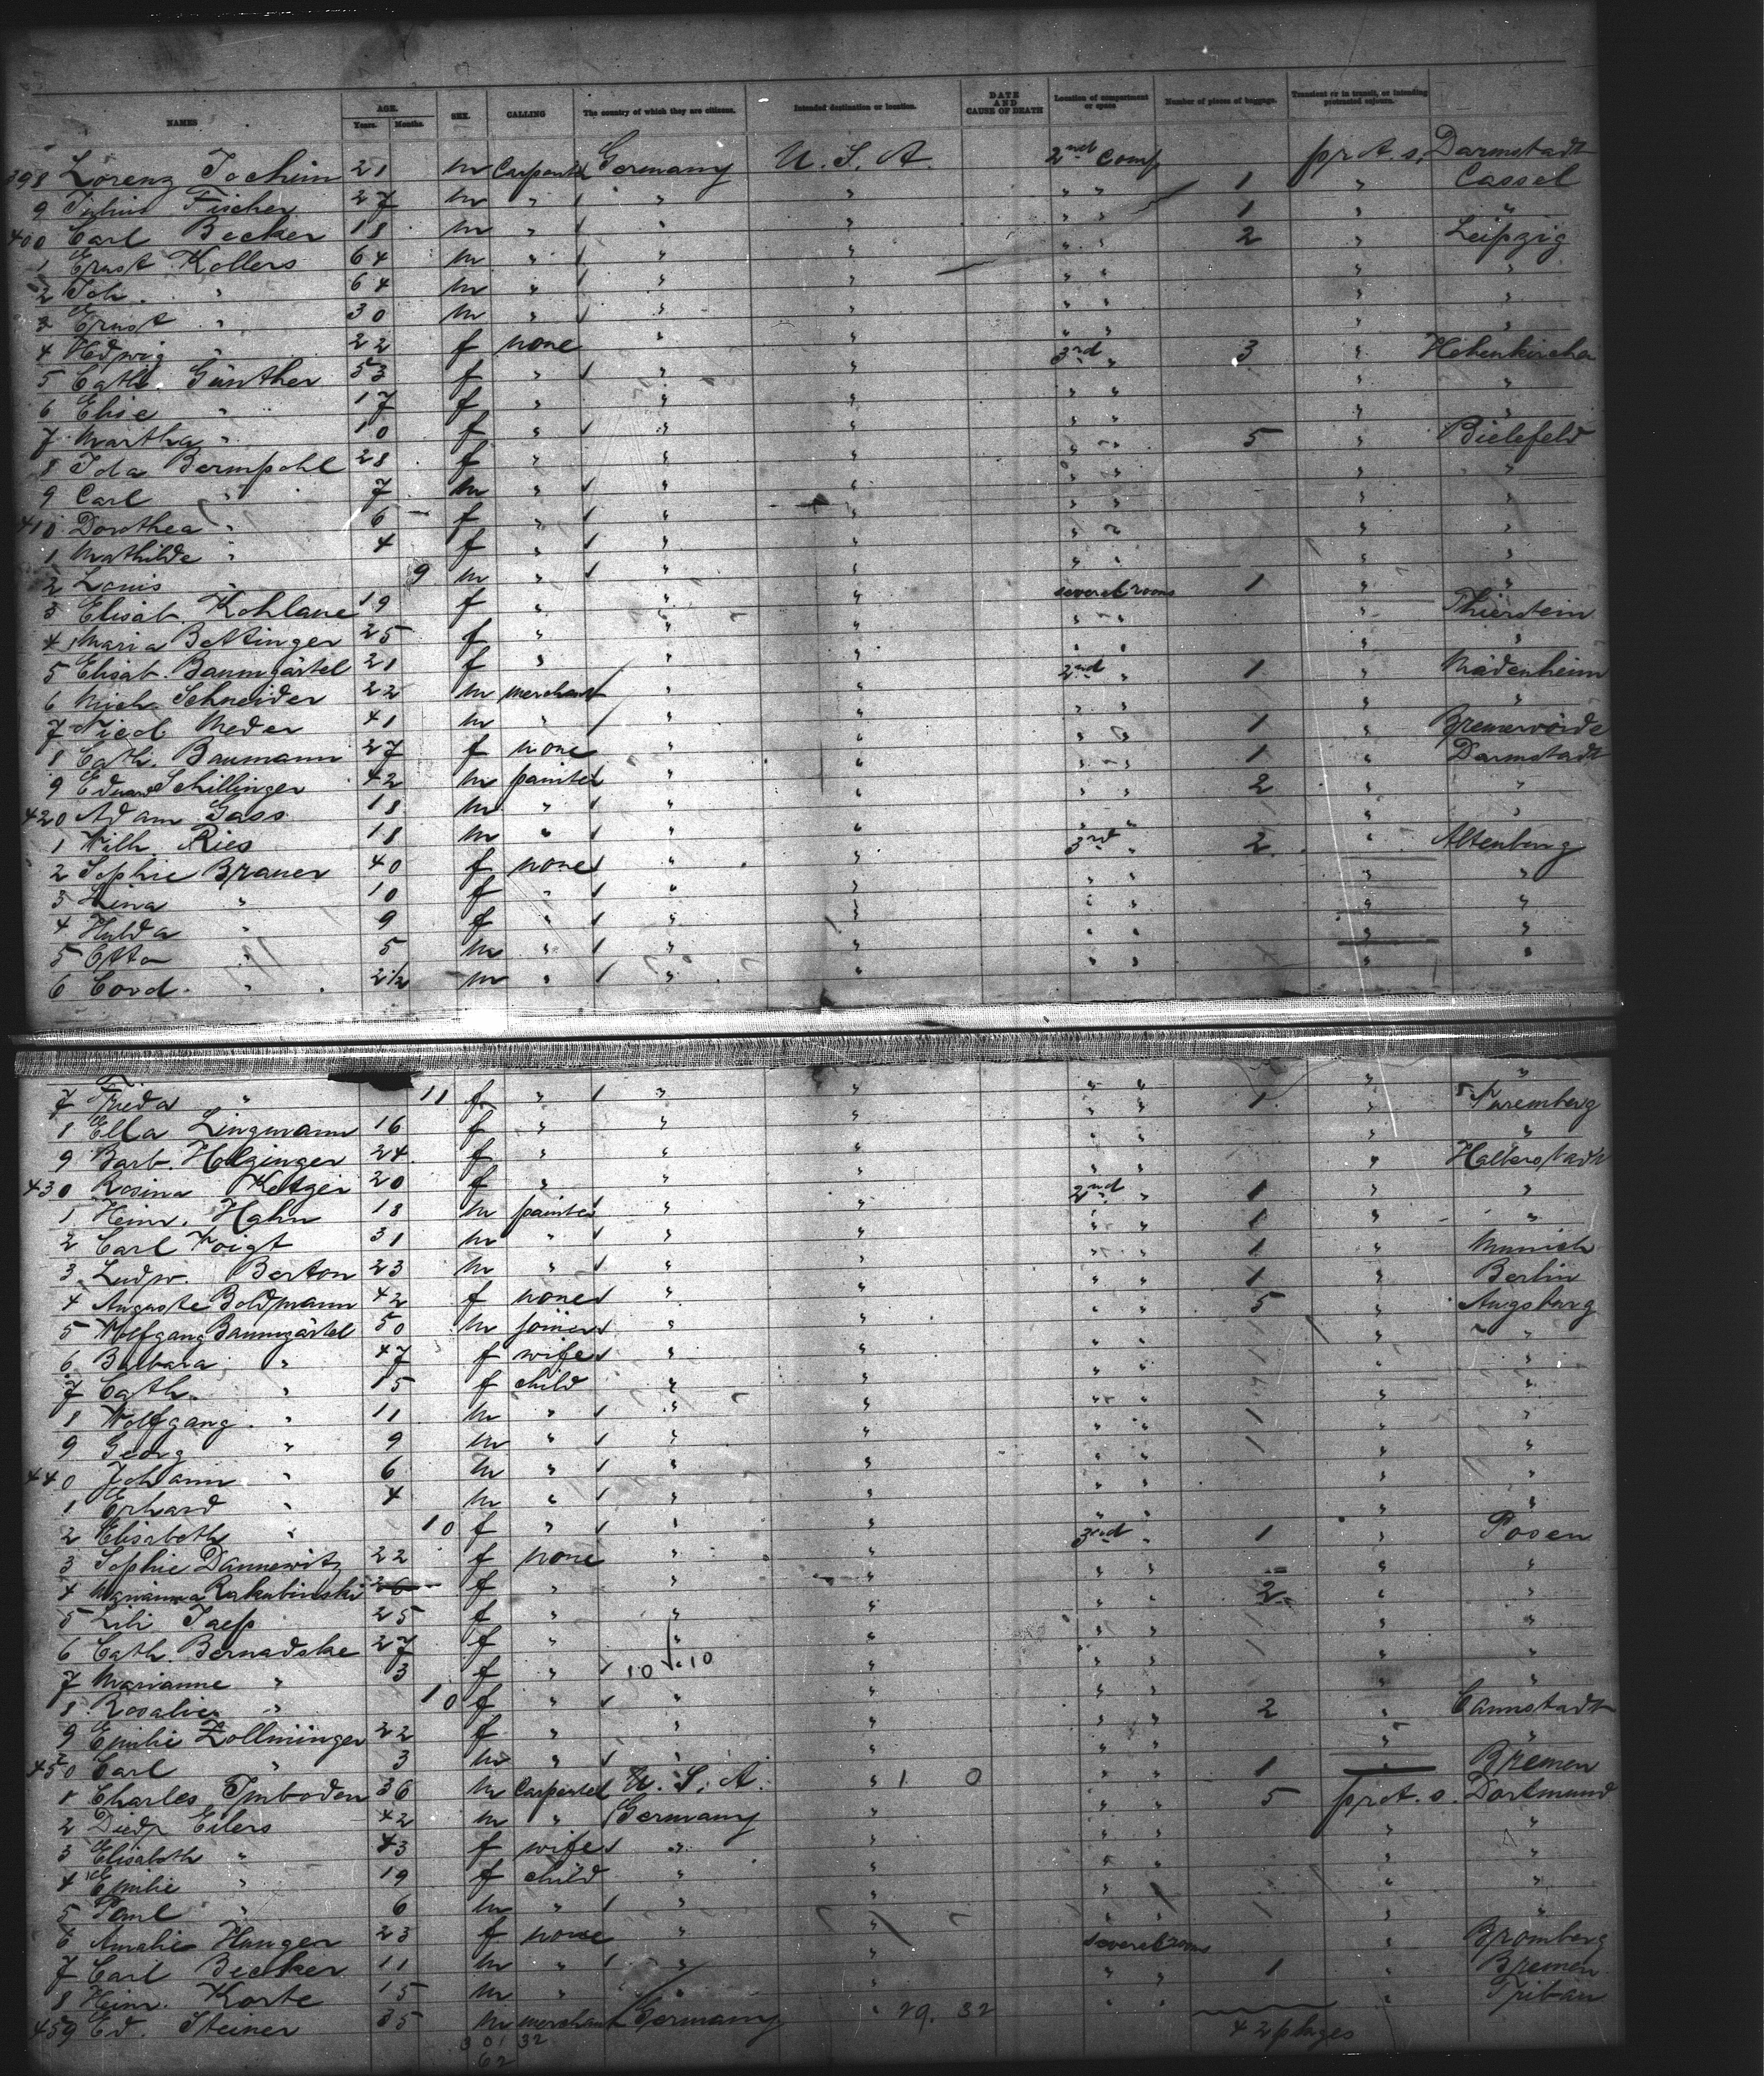 NAMES AGE. Years. Months. SEX. CALLING The country of which they are citizens. Intended destination or location. DATE AND CAUSE OF DEATH Location of compartment or space Number of pieces of baggage. Transient or in transit, or intending protracted sojourn.
398 Lorenz Jochim 21 m Carpenter Germany U. S. A. 2nd Comp prot. s. Darmstadt
9 Julius Fischer 27 m " " " " " 1 " Cassel
400 Carl Becker 18 m " " " " " 1 " "
1 Ernst Kollers 64 m " " " " " 2 " Leipzig
2 Joh. " 64 m " " " " " " "
3 Ernst " 30 m " " " " " " "
4 Hedwig " 22 f none " " " " " "
5 Cath. Günther 53 f " " " 3rd " 3 " Hohenkirchen
6 Elise " 17 f " " " " " " "
7 Martha " 10 f " " " " " " "
8 Ida Bermpohl 28 f " " " " " 5 " Bielefeld
9 Carl " 7 m " " " " " " "
410 Dorothea " 6 f " " " " " " "
1 Mathilde " 4 f " " " " " " "
2 Louis " 9 m " " " " " " "
3 Elisab. Kohlane 19 f " " " several rooms 1 " "
4 Maria Bettinger 25 f " " " " " " Thierstein
5 Elisab. Baumgärtel 21 f " " " " " " "
6 Mich. Schneider 22 m merchant " " 2nd " 1 " Mädenheim
7 Nicol Meder 41 m " " " " " " "
8 Cath. Baumann 27 f none " " " " 1 " Bremervörde
9 Eduard Schillinger 42 m painter " " " " 1 " Darmstadt
420 Adam Gass 18 m " " " " " 2 " "
1 Wilh. Ries 18 m " " " " " " "
2 Sophie Brauer 40 f none " " 3rd " 2 " Altenburg
3 Lina " 10 f " " " " " " "
4 Hulda " 9 f " " " " " " "
5 Otto " 5 m " " " " " " "
6 Cord. " 2 1/2 m " " " " " " "
7 Frieda " 11 f " " " " " " "
8 Ella Lingmann 16 f " " " " " 1 " Nuremberg
9 Barb. Holzinger 24 f " " " " " " "
430 Rosina Ketzer 20 f " " " " " " Halberstadt
1 Heinr. Hahn 18 m painter " " 2nd " 1 " "
2 Carl Voigt 31 m " " " " " 1 " "
3 Ludw. Berton 23 m " " " " " 1 " Munich
4 Auguste Boldmann 42 f none " " " " 1 " Berlin
5 Wolfgang Baumgärtel 50 m joiner " " " " 5 " Augsburg
6 Barbara " 47 f wife " " " " " "
7 Cath. " 15 f child " " " " " "
8 Wolfgang " 11 m " " " " " " "
9 Georg " 9 m " " " " " " "
440 Johann " 6 m " " " " " " "
1 Erhard " 4 m " " " " " " "
2 Elisabeth " 10 f " " " " " " "
3 Sophie Dannewitz 22 f none " " 3rd " 1 " Posen
4 Marianna Rakubinski 26 f " " " " " " "
5 Lili Jaeß 25 f " " " " " 2 " "
6 Cath. Bernadske 27 f " " " " " " "
7 Marianne " 3 f " 10 10 " " " " "
8 Rosalie " 10 f " " " " " " "
9 Emilie Zollminger 22 f " " " " " 2 " Cannstadt
450 Carl " 3 m " " " " " " "
1 Charles Imboden 36 m Carpenter U. S. A. " 1 0 " " 1 " Bremen
2 Diedr Eilers 42 m " Germany " " " 5 prot. s. Dortmund
3 Elisabeth " 43 f wife " " " " " "
4 Emilie " 19 f child " " " " " "
5 Paul " 6 m " " " " " " "
6 Amalie Hunger 23 f none " " " " " "
7 Carl Becker 11 m " " " several rooms " Bromberg
8 Heinr. Korte 15 m " " " " " 1 " Bremen
459 Ed. Steiner 35 m merchant Germany " 29. 32 " " " Triban
301 32 42 plages
62